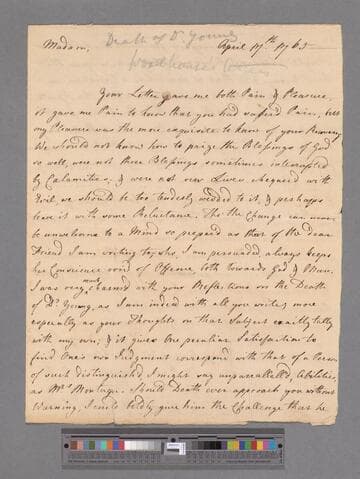 Death of Dr Young
Madam, April 17th 1765
Woodhouse
Your Letter gave me both Pain & Pleasure.
it gave me Pain to know that you had suffered Pain, but
my Pleasure was the more exquisite to know of your Recovery.
We should not know how to prize the Blessings of God
so well, were not these Blessings sometimes interrupted
by Calamities; & were not our Lives chequered with
Evil, we should be too tenderly wedded to it, & perhaps
leave it with some Reluctance. Tho' the Change can never
be unwelcome to a Mind so prepared as that of the dear
Friend I am writing to, who, I am persuaded, always keeps
her Conscience void of Offence both towards God & Man.
I was very much charmed with your Reflections on the Death
of Dr Young, as I am indeed with all you write, more
especially as your Thoughts on that Subject exactly tally
with my own; & it gives One peculiar Satisfaction to
find One's own Judgment correspond with that of a Person
of such distinguished, I might say unparallelled, Abilities,
as Mrs Montagu. Should Death ever approach you without
Warning, I could boldly give him the Challenge that he